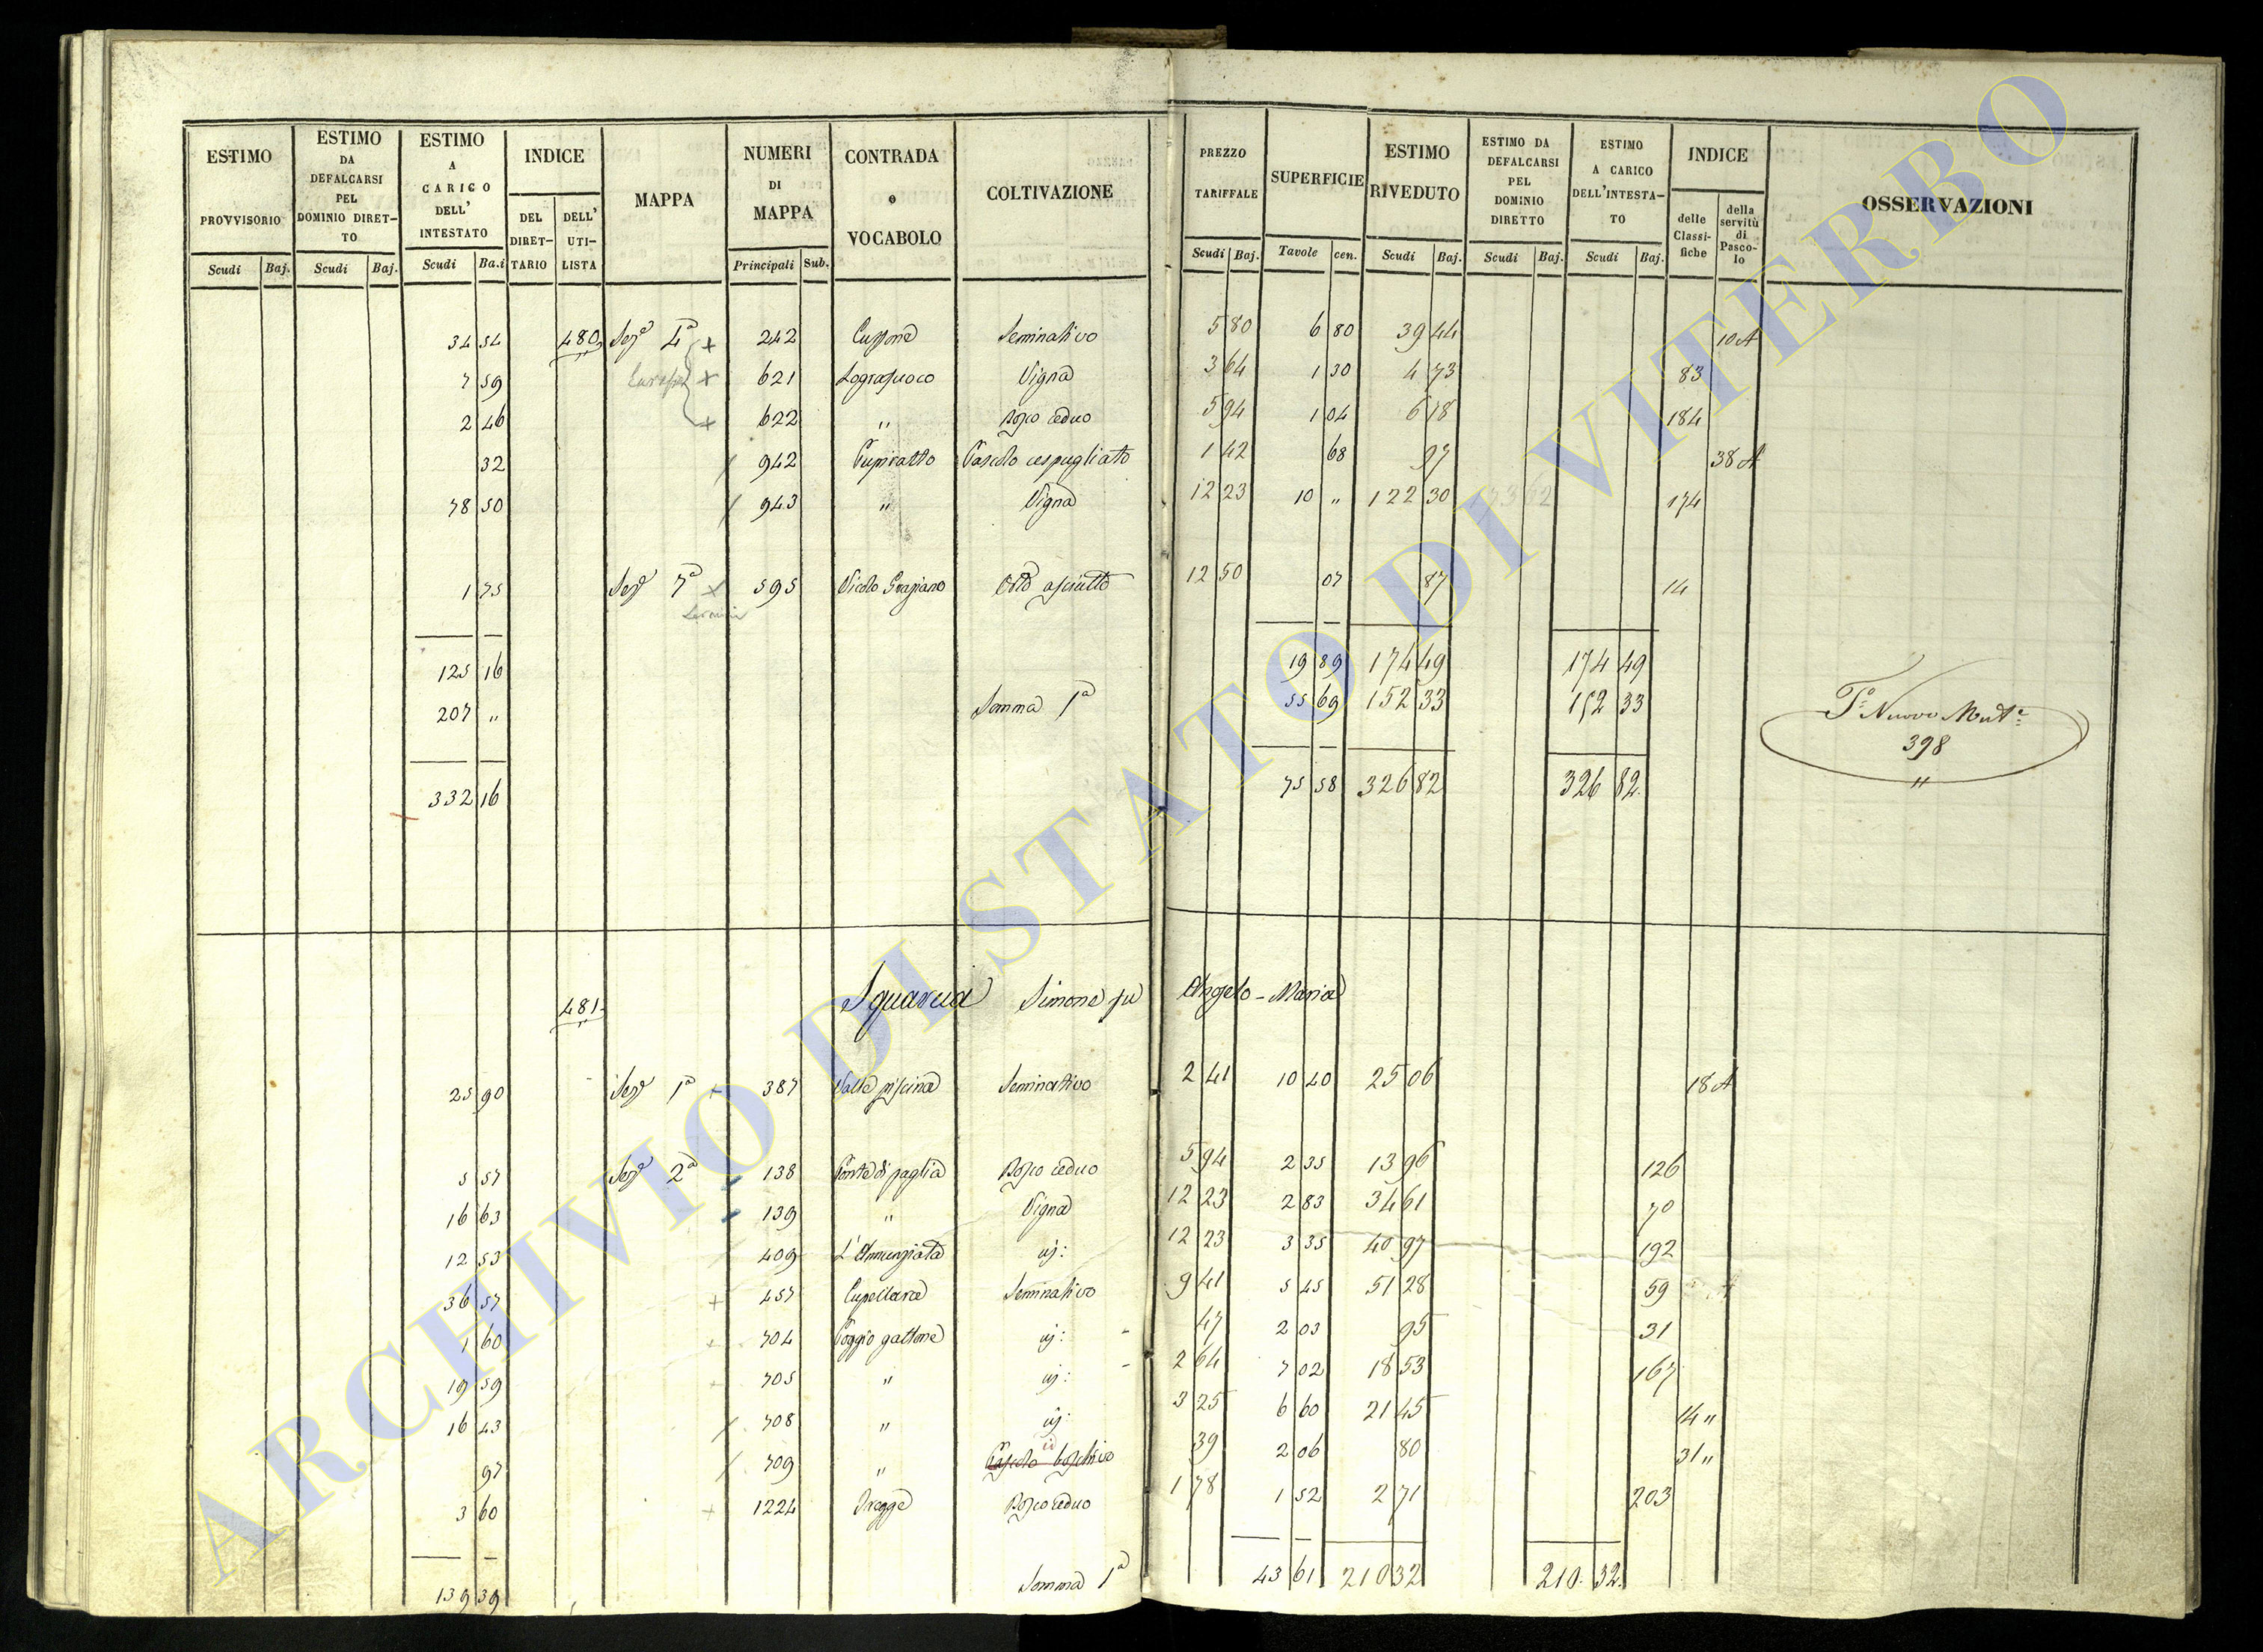 ESTIMO PROVVISORIO Scudi Baj.
ESTIMO DA DEFALCARSI PEL DOMINIO DIRETTO Scudi Baj.
ESTIMO A CARICO DELL' INTESTATO Scudi Ba.i
INDICE DEL DIRETTARIO DELL' UTILISTA
MAPPA
NUMERI DI MAPPA Principali Sub.
CONTRADA o VOCABOLO
COLTIVAZIONE
PREZZO TARIFFALE Scudi Baj.
SUPERFICIE Tavole cen.
ESTIMO RIVEDUTO Scudi Baj.
ESTIMO DA DEFALCARSI PEL DOMINIO DIRETTO Scudi Baj.
ESTIMO A CARICO DELL'INTESTATO Scudi Baj.
INDICE delle Classifiche della servitù di Pascolo
OSSERVAZIONI
34 54 480 Sez.e 4a + 242 Seminativo 5 80 6 80 39 44 10 A
7 59 + 621 Vigna 3 64 1 30 4 73 83
2 46 + 622 " Bosco ceduo 5 94 1 04 6 18 184
32 942 Pascolo cespugliato 1 42 68 97 38 A
78 50 943 " Vigna 12 23 10 " 122 30 174
1 75 Sez.e 7a x 595 Vicolo Graziano Orto asciutto 12 50 07 87 14
125 16 19 89 174 49 174 49
207 " Somma 1a 55 69 152 33 152 33
332 16 75 58 326 82 326 82
T.o Nuovo Mut.e
398
"
481 Squarcia Simone fu Angelo-Maria
25 90 Sez.e 1a + 387 Valle piscina Seminativo 2 41 10 40 25 06 18 A
5 57 Sez.e 2a 138 Fonte di paglia Bosco ceduo 5 94 2 35 13 96 126
16 63 139 " Vigna 12 23 2 83 34 61 70
12 53 409 L'Annunziata 12 23 3 35 40 97 192
36 57 + 457 Cupellara Seminativo 9 41 5 45 51 28 59 A
1 60 + 704 Poggio gattone 47 2 03 95 31
19 59 + 705 " 2 64 7 02 18 53 167
16 43 708 " 3 25 6 60 21 45 14 "
97 709 " Pascolo boschivo 39 2 06 80 31 "
3 60 + 1224 Bosco ceduo 1 78 1 52 2 71 203
139 39 Somma 1a 43 61 210 32 210 32
ARCHIVIO DI STATO DI VITERBO